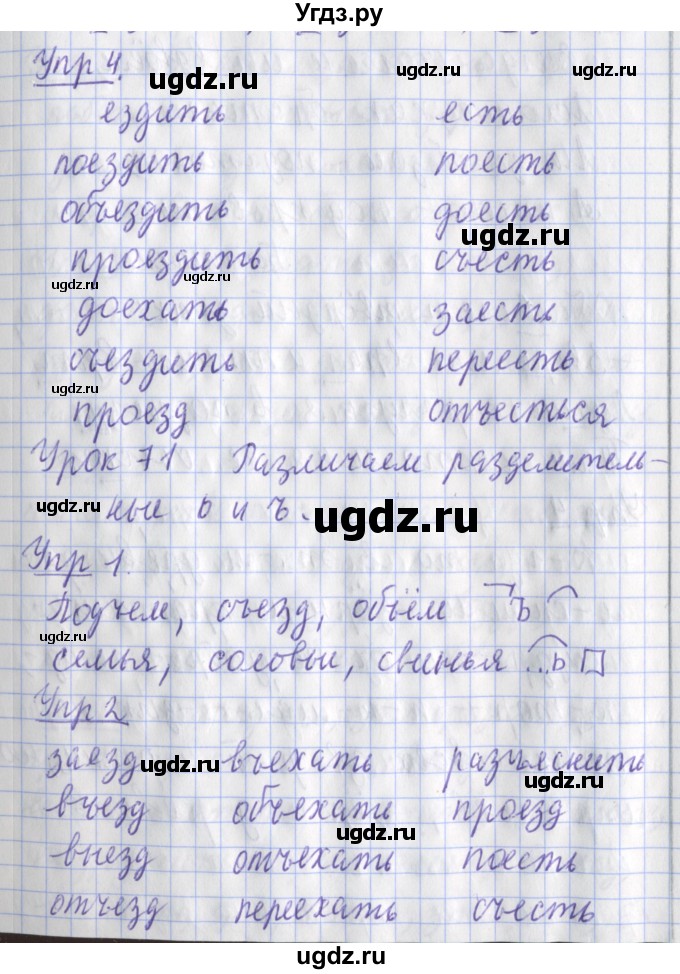 Угдз.ру
Упр 4.
ugdz.ru ugdz.ru
ездить есть
поездить поесть
объездить доесть
ugdz.ru
проездить съесть
ugdz.ru
доехать заесть
съездить переесть
ugdz.ru
проезд отъесться
Урок 71 Различаем разделитель-
ugdz.ru
ные ь и ъ.
ugdz.ru
Упр 1.
Подъем, съезд, объём ъ
ugdz.ru
семья, соловьи, свинья ..ь
Упр 2
заезд въехать разъяснить
ugdz.ru ugdz.ru
въезд объехать проезд
ugdz.ru
выезд отъехать поесть
отъезд переехать съесть
ugdz.ru